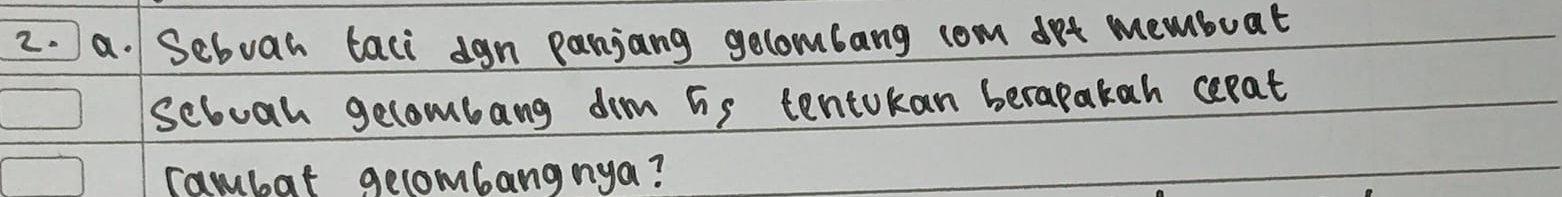 2. a. Sebuah tali dgn panjang gelombang 10m dpt membuat
sebuah gelombang dlm 5s tentukan berapakah cepat
rambat gelombangnya?